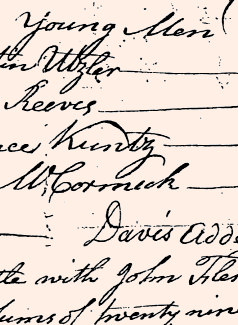 Young Men
tin Utzler
Reeves
Kuntz
McCormick
Davis Add
tle with John
ums of twenty nin